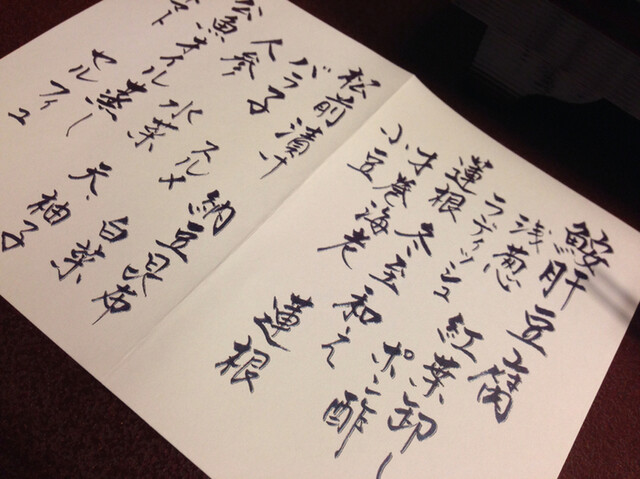 鮟肝豆腐
浅葱 紅葉卸し
ラディッシュ ポン酢
蓮根 冬至和え
才巻海老
小豆 蓮根
松前漬け 納豆昆布
バラ子 スルメ 白菜
人参 水菜 天、柚子
公魚オイル蒸し
マト セルフィユ